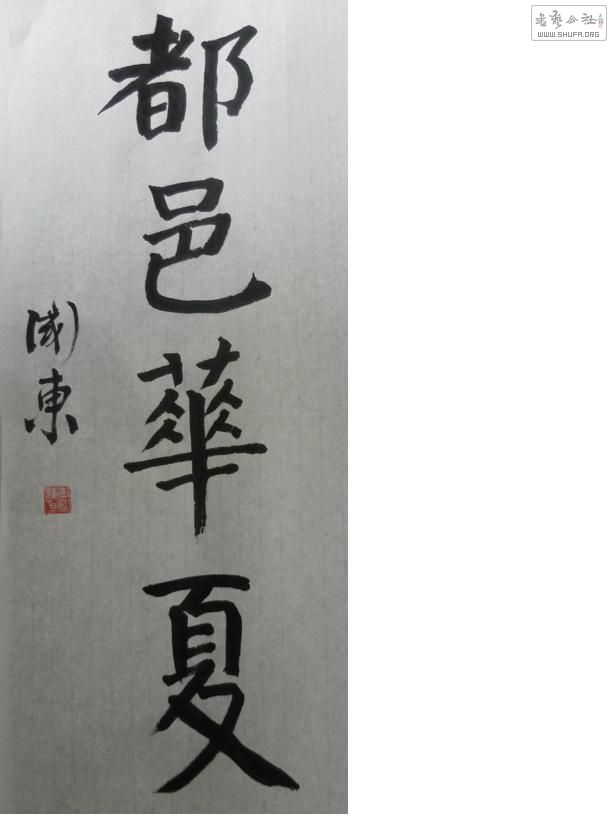 都邑華夏
國東
書藝公社
WWW.SHUFA.ORG